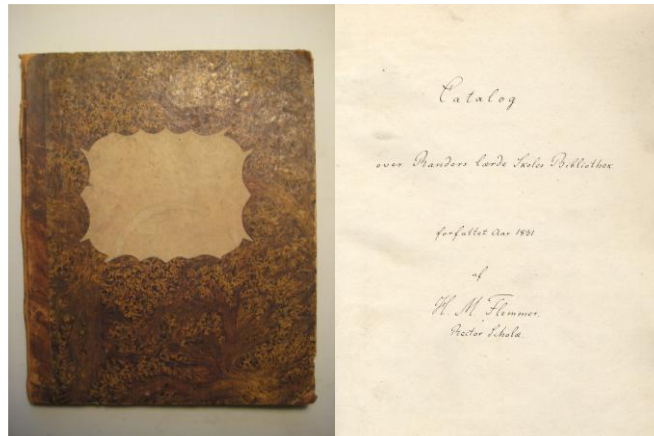 Catalog
over Randers lærde Skoles Bibliothek
forfattet Aar 1831
af
H. M. Flemmer.
Rector Scholæ.